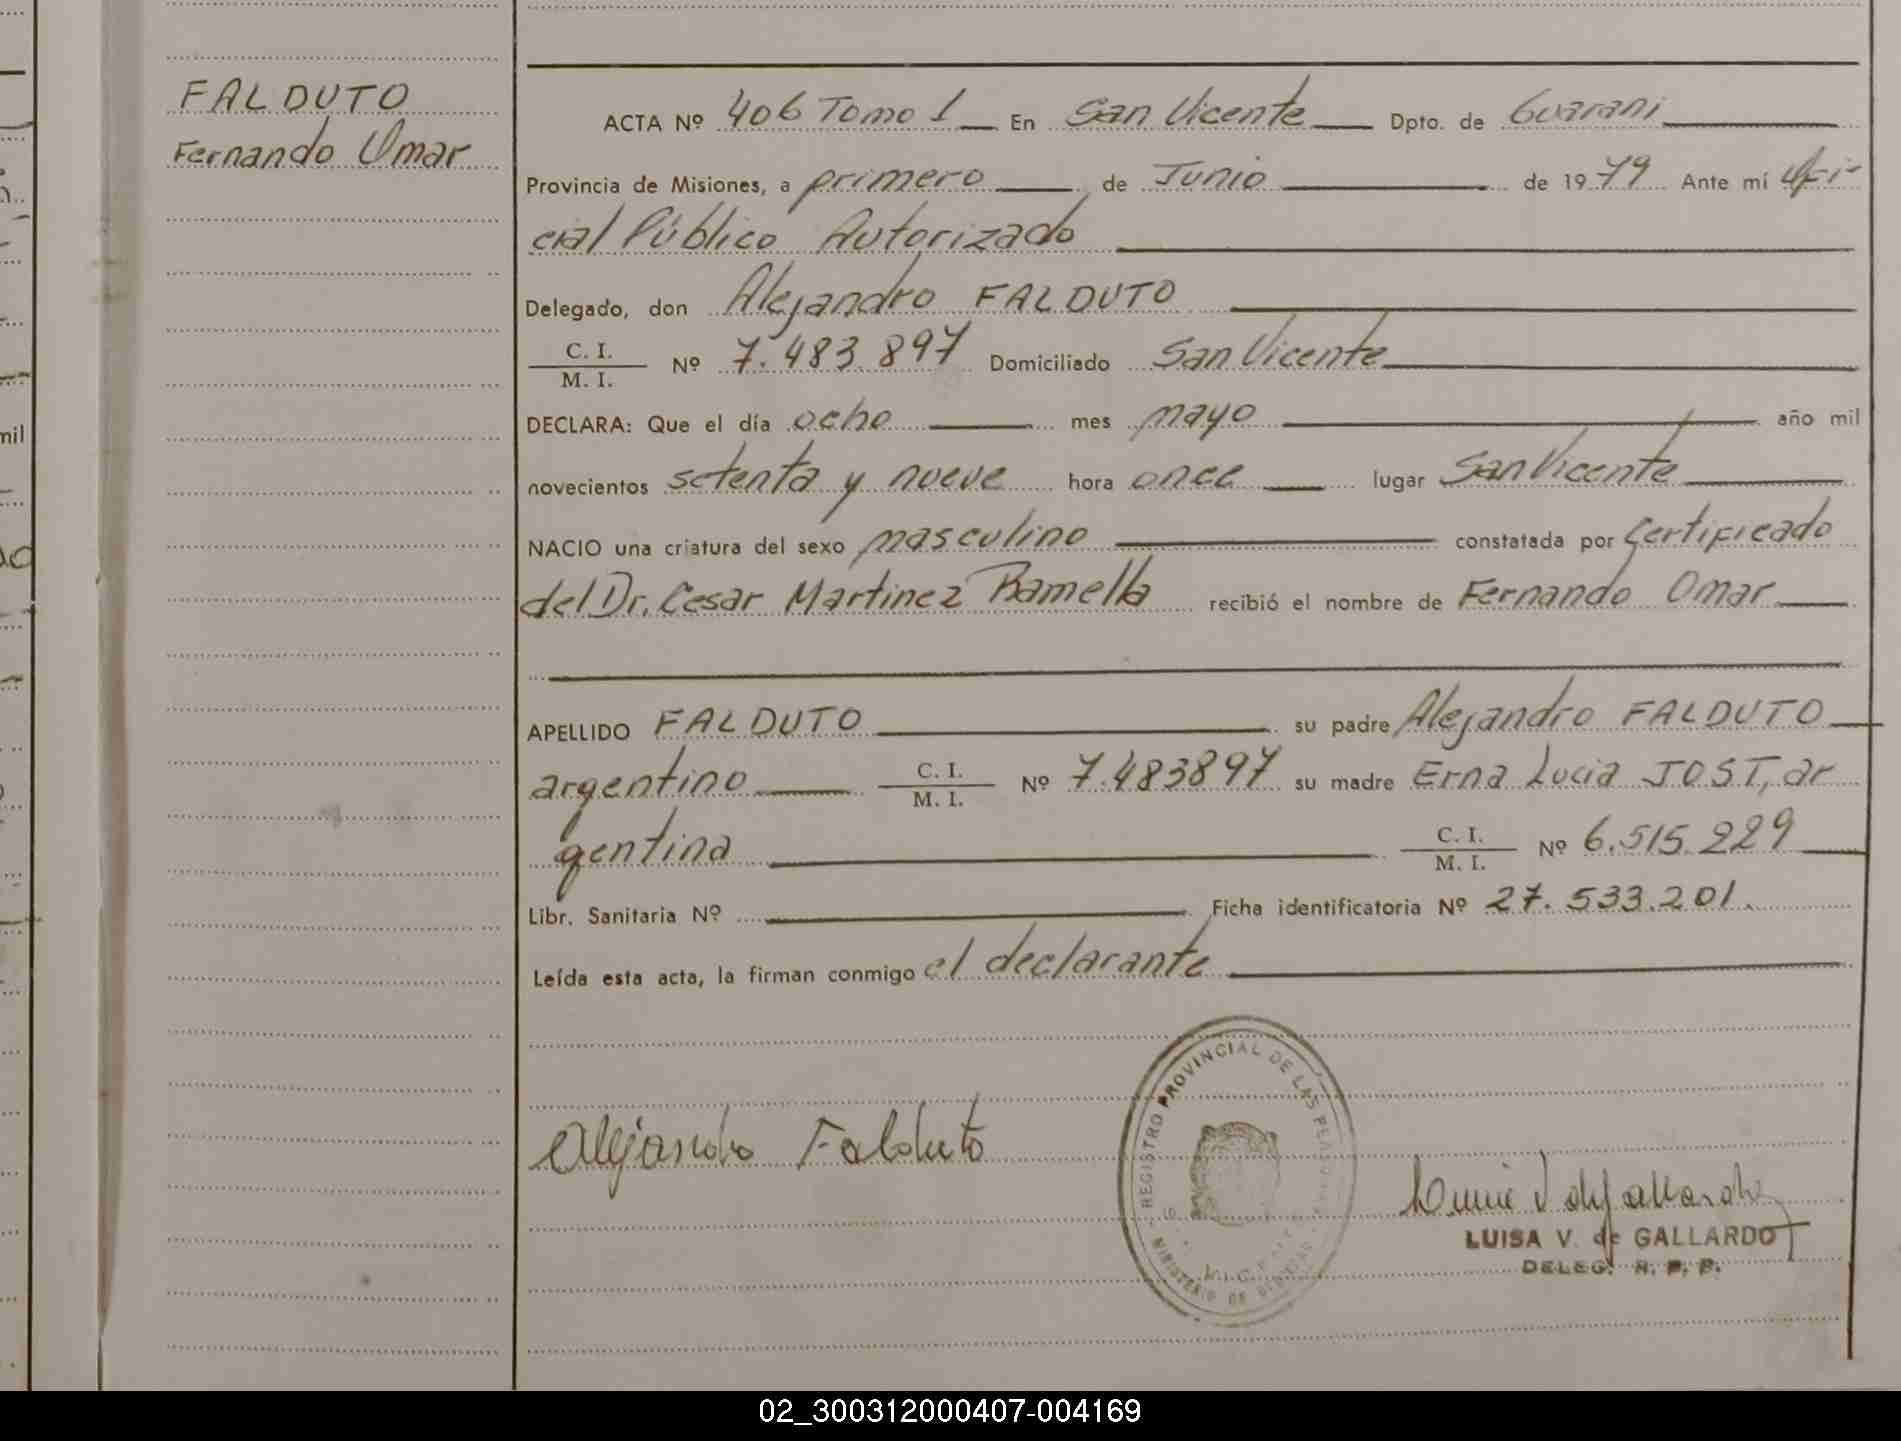 FALDUTO
Fernando Omar
ACTA Nº 406 Tomo 1 En San Vicente Dpto. de Guarani
Provincia de Misiones, a primero de Junio de 1979 Ante mí Ofi-
cial Público Autorizado
Delegado, don Alejandro FALDUTO
C. I.
M. I. Nº 7.483.897 Domiciliado San Vicente
DECLARA: Que el día ocho mes mayo año mil
novecientos setenta y nueve hora once lugar San Vicente
NACIO una criatura del sexo masculino constatada por Certificado
del Dr. Cesar Martinez Ramella recibió el nombre de Fernando Omar
APELLIDO FALDUTO su padre Alejandro FALDUTO
argentino C. I.
M. I. Nº 7.483897 su madre Erna Lucia JOST, ar
gentina C. I.
M. I. Nº 6.515.229
Libr. Sanitaria Nº Ficha identificatoria Nº 27.533.201.
Leída esta acta, la firman conmigo el declarante
REGISTRO PROVINCIAL DE LAS
MINISTERIO DE
Alejandro Falduto
LUISA V. de GALLARDO
DELEG. R. P. P.
mil
02_300312000407-004169